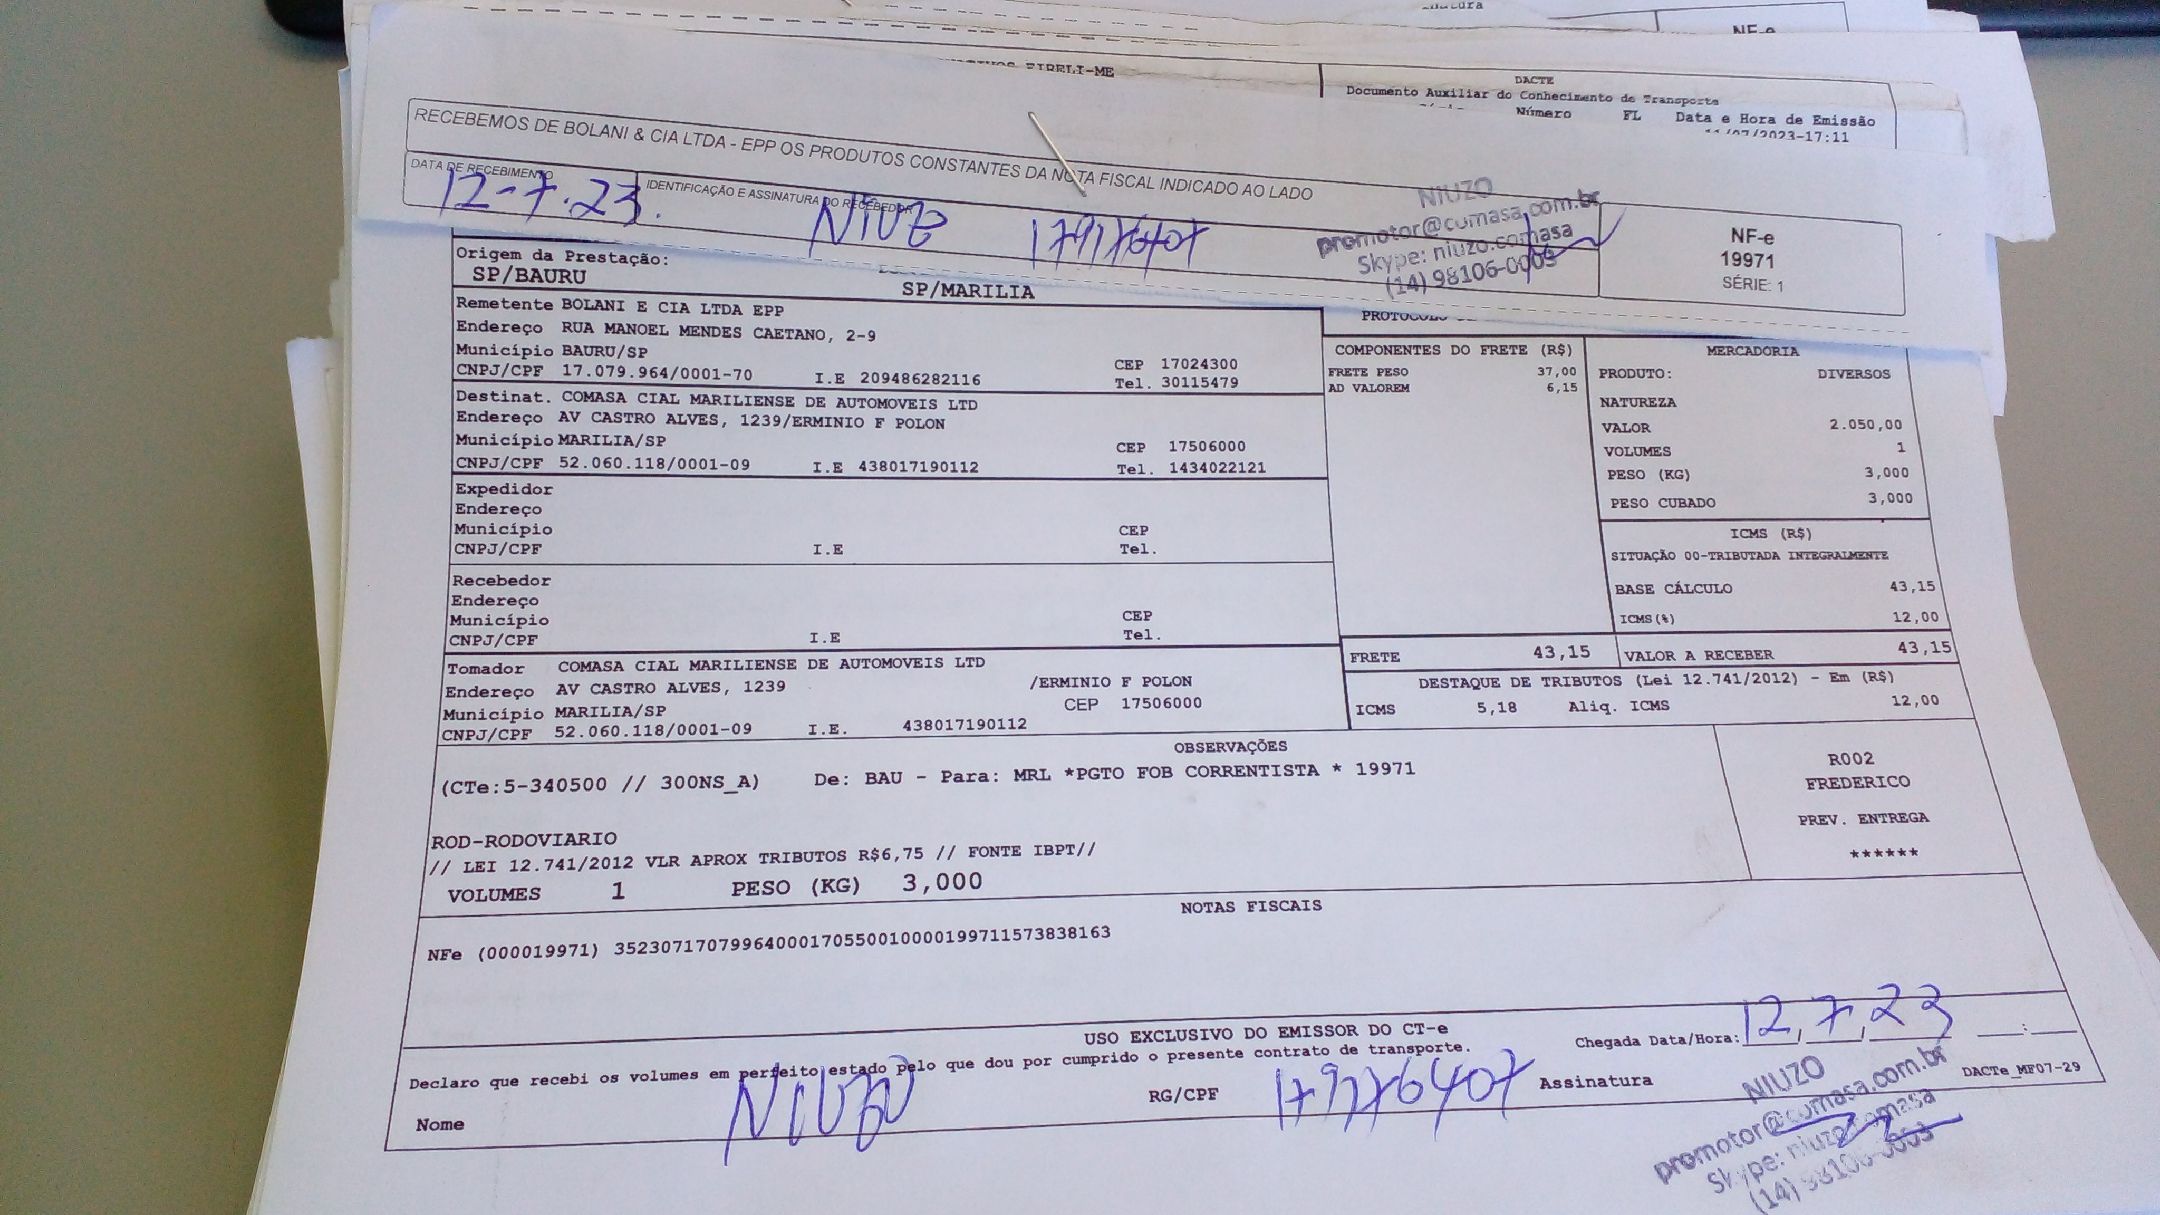 NF-e
EIRELI-ME
DACTE
Documento Auxiliar do Conhecimento de Transporte
Número FL Data e Hora de Emissão
11/07/2023-17:11
RECEBEMOS DE BOLANI & CIA LTDA - EPP OS PRODUTOS CONSTANTES DA NOTA FISCAL INDICADO AO LADO
DATA DE RECEBIMENTO
12-7.23.
IDENTIFICAÇÃO E ASSINATURA DO RECEBEDOR
NIUZO
promotor@comasa.com.br
Skype: niuzo.comasa
(14) 98106-0003
NF-e
19971
SÉRIE: 1
Origem da Prestação:
SP/BAURU SP/MARILIA
Remetente BOLANI E CIA LTDA EPP
Endereço RUA MANOEL MENDES CAETANO, 2-9
Município BAURU/SP CEP 17024300
CNPJ/CPF 17.079.964/0001-70 I.E 209486282116 Tel. 30115479
Destinat. COMASA CIAL MARILIENSE DE AUTOMOVEIS LTD
Endereço AV CASTRO ALVES, 1239/ERMINIO F POLON
Município MARILIA/SP CEP 17506000
CNPJ/CPF 52.060.118/0001-09 I.E 438017190112 Tel. 1434022121
Expedidor
Endereço
Município CEP
CNPJ/CPF I.E Tel.
Recebedor
Endereço
Município CEP
CNPJ/CPF I.E Tel.
Tomador COMASA CIAL MARILIENSE DE AUTOMOVEIS LTD
Endereço AV CASTRO ALVES, 1239 /ERMINIO F POLON
Município MARILIA/SP CEP 17506000
CNPJ/CPF 52.060.118/0001-09 I.E. 438017190112
PROTOCOLO
COMPONENTES DO FRETE (R$)
FRETE PESO 37,00
AD VALOREM 6,15
MERCADORIA
PRODUTO: DIVERSOS
NATUREZA
VALOR 2.050,00
VOLUMES 1
PESO (KG) 3,000
PESO CUBADO 3,000
ICMS (R$)
SITUAÇÃO 00-TRIBUTADA INTEGRALMENTE
BASE CÁLCULO 43,15
ICMS(%) 12,00
FRETE 43,15 VALOR A RECEBER 43,15
DESTAQUE DE TRIBUTOS (Lei 12.741/2012) - Em (R$)
ICMS 5,18 Aliq. ICMS 12,00
OBSERVAÇÕES
(CTe:5-340500 // 300NS_A) De: BAU - Para: MRL *PGTO FOB CORRENTISTA * 19971
ROD-RODOVIARIO
// LEI 12.741/2012 VLR APROX TRIBUTOS R$6,75 // FONTE IBPT//
VOLUMES 1 PESO (KG) 3,000
R002
FREDERICO
PREV. ENTREGA
******
NOTAS FISCAIS
NFe (000019971) 35230717079964000170550010000199711573838163
USO EXCLUSIVO DO EMISSOR DO CT-e
Declaro que recebi os volumes em perfeito estado pelo que dou por cumprido o presente contrato de transporte.
Chegada Data/Hora: 12,7,23 :
Nome NIUZO RG/CPF Assinatura
DACTe_MF07-29
NIUZO
promotor@comasa.com.br
Skype: niuzo.comasa
(14) 98106-0003